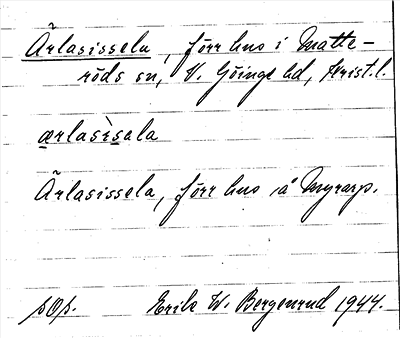 Ärlasissela, förr hus i Matte-
röds sn, V. Göinge hd, Krist. l.
ærlasìsela
Ärlasissela, förr hus å Myrarp.
sOp. Erik W. Bergenrud 1944.